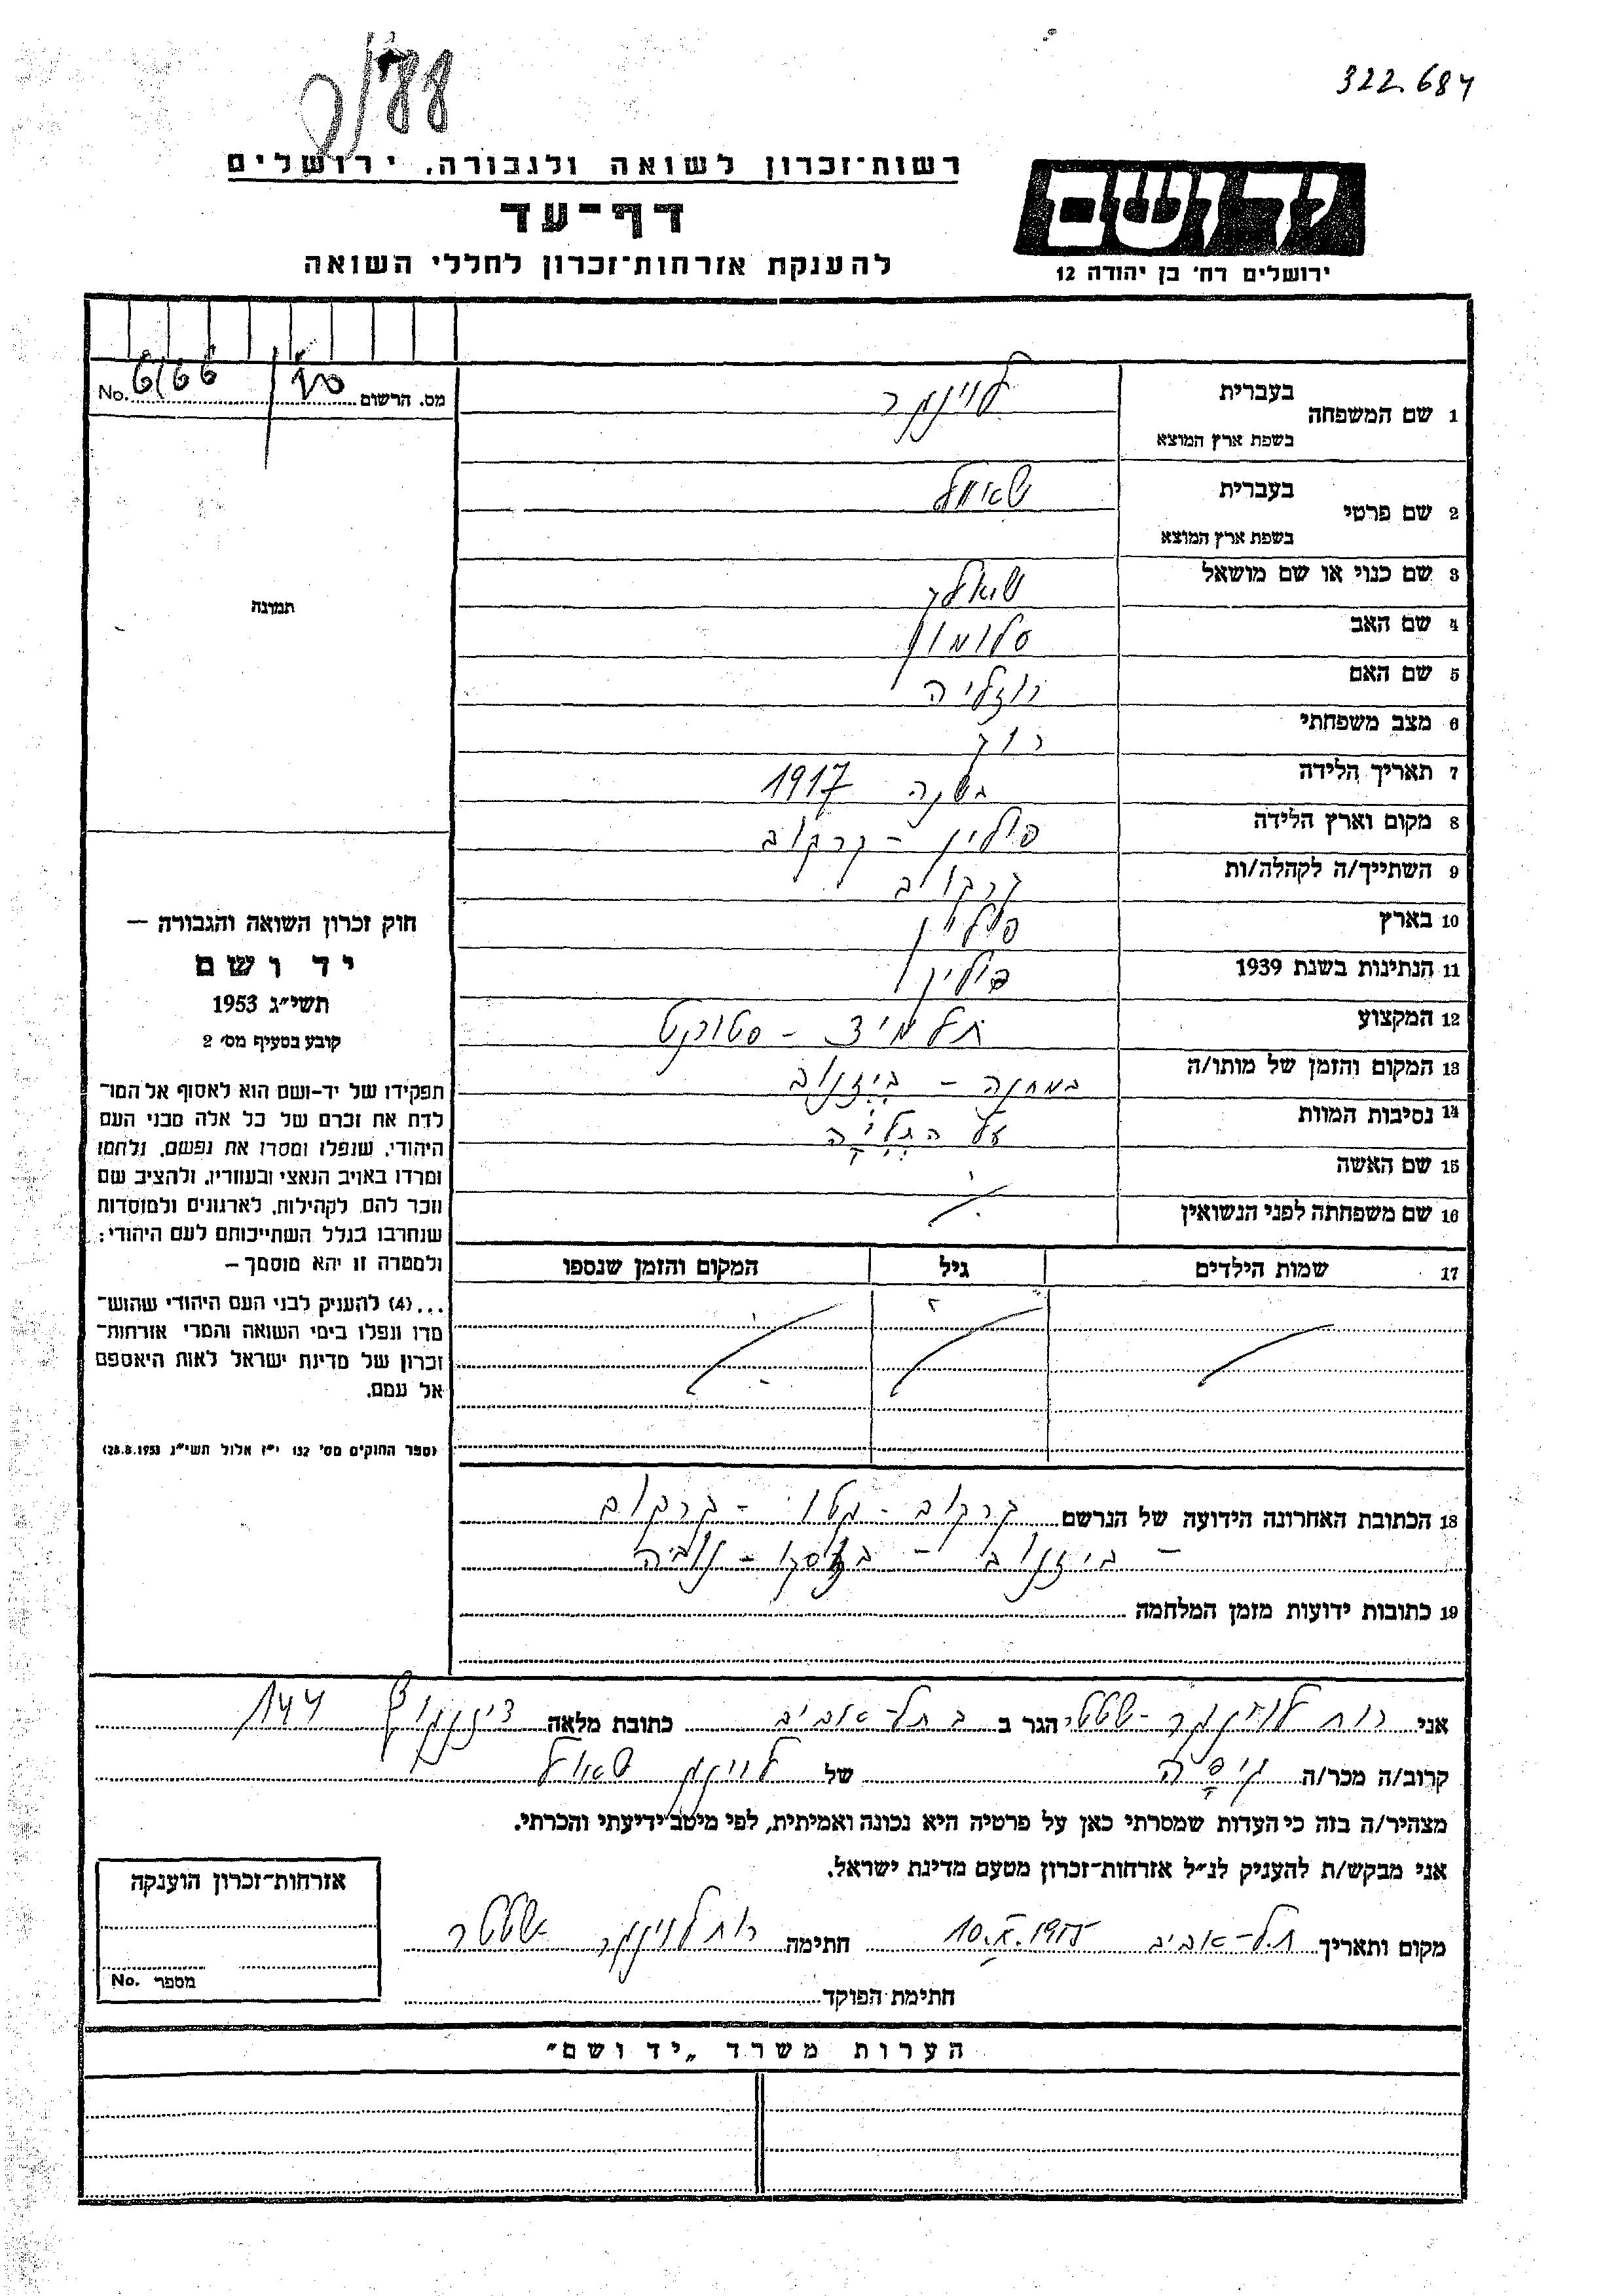 322.684
רשות־זכרון לשואה ולגבורה, ירושלים
דף־עד
להענקת אזרחות־זכרון לחללי השואה
יד ושם
ירושלים רח׳ בן יהודה 12
מס. הרשום No. 6/66
1 שם המשפחה
בעברית
בשפת ארץ המוצא
2 שם פרטי
בעברית
בשפת ארץ המוצא
3 שם כנוי או שם מושאל
4 שם האב סלומון
5 שם האם רוזליה
6 מצב משפחתי רוק
7 תאריך הלידה בשנה 1917
8 מקום וארץ הלידה פולין - קרקוב
9 השתייך/ה לקהלה/ות קרקוב
10 בארץ פולין
11 הנתינות בשנת 1939 פולין
12 המקצוע תלמיד - סטודנט
13 המקום והזמן של מותו/ה במחנה - ביזנוב
14 נסיבות המוות על התליה
15 שם האשה
16 שם משפחתה לפני הנשואין
17 שמות הילדים גיל המקום והזמן שנספו
תמונה
חוק זכרון השואה והגבורה –
יד ושם
תשי״ג 1953
קובע בסעיף מס׳ 2
תפקידו של יד-ושם הוא לאסוף אל המו־
לדת את זכרם של כל אלה מבני העם
היהודי, שנפלו ומסרו את נפשם, נלחמו
ומרדו באויב הנאצי ובעוזריו, ולהציב שם
וזכר להם לקהילות, לארגונים ולמוסדות
שנחרבו בגלל השתייכותם לעם היהודי:
ולמטרה זו יהא מוסמך –
...(4) להעניק לבני העם היהודי שהוש־
מדו ונפלו בימי השואה והמרי אזרחות־
זכרון של מדינת ישראל לאות היאספם
אל עמם.
(ספר החוקים מס׳ 132 י״ז אלול תשי״ג 28.8.1953)
18 הכתובת האחרונה הידועה של הנרשם קרקוב - גטו - קרקוב
- ביזנוב -
19 כתובות ידועות מזמן המלחמה
אני רות הגר ב בתל-אביב כתובת מלאה דיזנגוף 144
קרוב/ה מכר/ה גיסה של שאול
מצהיר/ה בזה כי העדות שמסרתי כאן על פרטיה היא נכונה ואמיתית, לפי מיטב ידיעתי והכרתי.
אני מבקש/ת להעניק לנ״ל אזרחות־זכרון מטעם מדינת ישראל.
מקום ותאריך תל-אביב 10.X.1955 חתימה רות
חתימת הפוקד
אזרחות־זכרון הוענקה
מספר No.
הערות משרד „יד ושם״